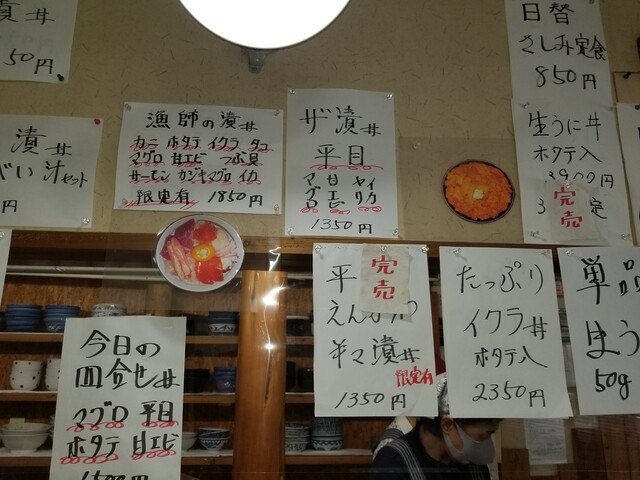 貢丼
50円
漬丼
べい汁セット
円
漁師の漬丼
カニ ホタテ イクラ タコ
マグロ 甘エビ つぶ貝
サーモン カジキマグロ イカ
限定有 1850円
ザ漬丼
平目
マグロ
甘エビ
イカ
1350円
日替
さしみ定食
850円
生うに丼
ホタテ入
3900円
完売
定
平
えんがわ
半々漬丼
限定有
1350円
完売
たっぷり
イクラ丼
ホタテ入
2350円
単品
ほう
50g
今日の
四合せ丼
マグロ 平目
ホタテ 甘エビ